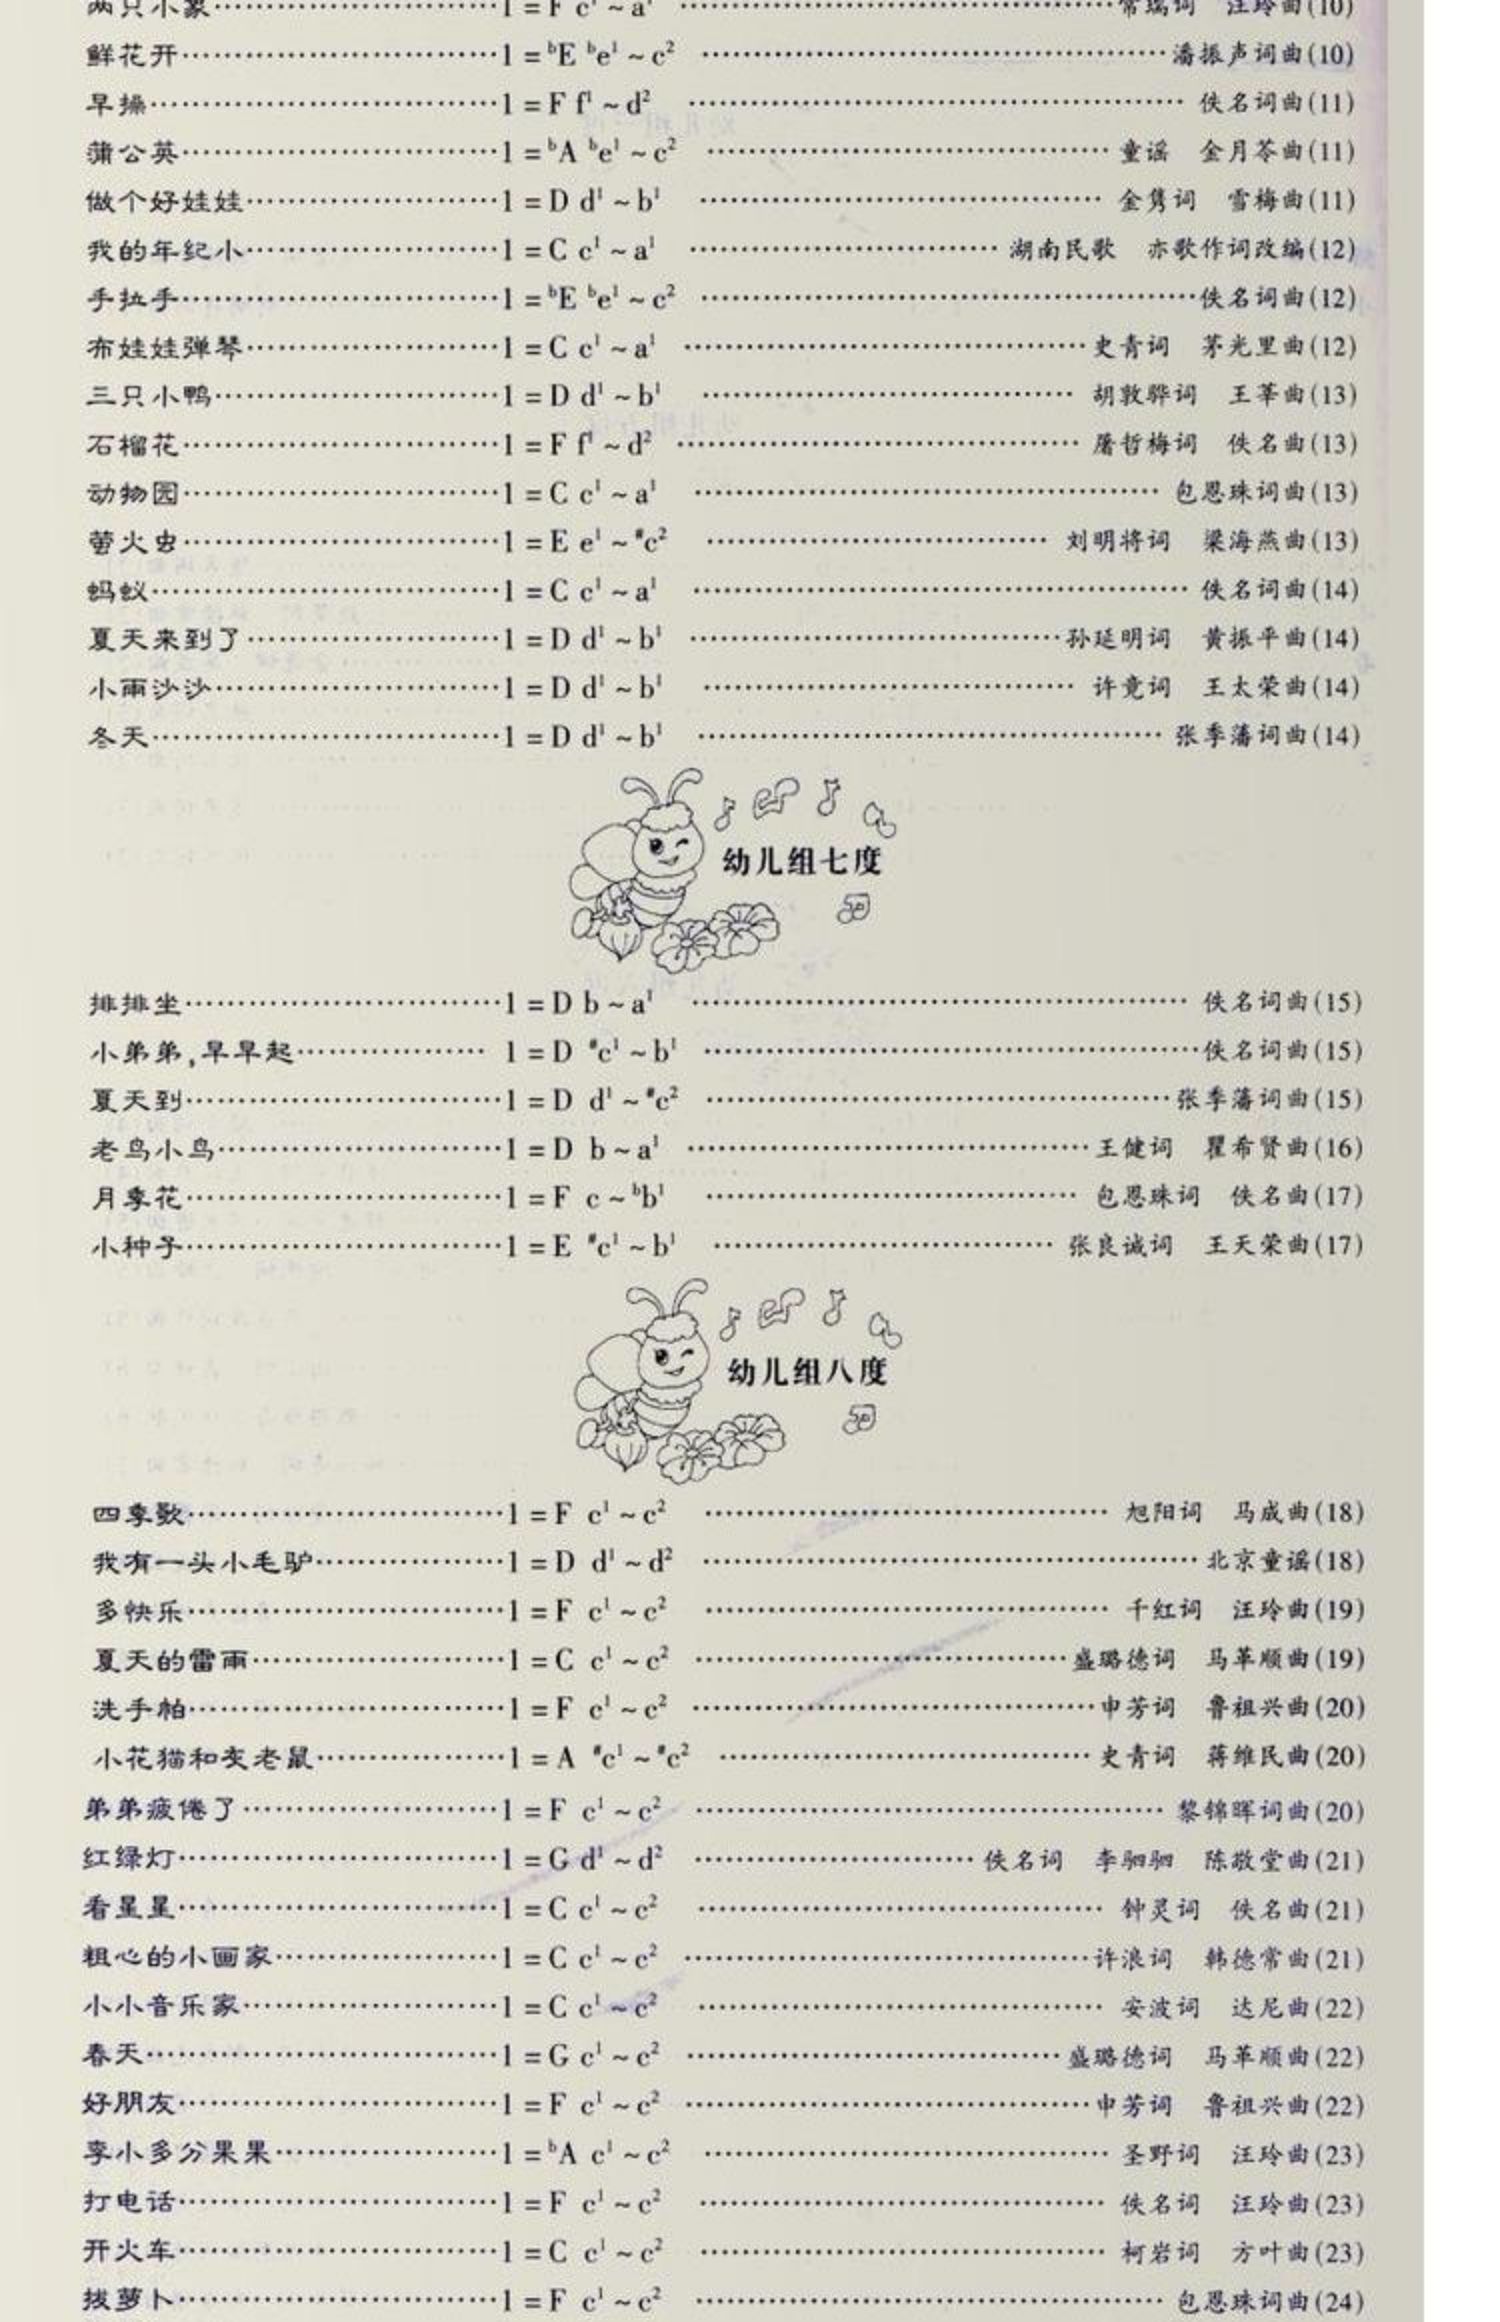 两只小象…………1=F c¹~a¹…………常瑞词 汪玲曲(10)
鲜花开…………1=ᵇE ᵇe¹~c²…………潘振声词曲(10)
早操…………1=F f¹~d²…………佚名词曲(11)
蒲公英…………1=ᵇA ᵇe¹~c²…………童谣 金月苓曲(11)
做个好娃娃…………1=D d¹~b¹…………金隽词 雪梅曲(11)
我的年纪小…………1=C c¹~a¹…………湖南民歌 亦歌作词改编(12)
手拉手…………1=ᵇE ᵇe¹~c²…………佚名词曲(12)
布娃娃弹琴…………1=C c¹~a¹…………史青词 茅光里曲(12)
三只小鸭…………1=D d¹~b¹…………胡敦骅词 王莘曲(13)
石榴花…………1=F f¹~d²…………屠哲梅词 佚名曲(13)
动物园…………1=C c¹~a¹…………包恩珠词曲(13)
萤火虫…………1=E e¹~#c²…………刘明将词 梁海燕曲(13)
蚂蚁…………1=C c¹~a¹…………佚名词曲(14)
夏天来到了…………1=D d¹~b¹…………孙延明词 黄振平曲(14)
小雨沙沙…………1=D d¹~b¹…………许竟词 王太荣曲(14)
冬天…………1=D d¹~b¹…………张季藩词曲(14)
幼儿组七度
排排坐…………1=D b~a¹…………佚名词曲(15)
小弟弟,早早起…………1=D #c¹~b¹…………佚名词曲(15)
夏天到…………1=D d¹~#c²…………张季藩词曲(15)
老鸟小鸟…………1=D b~a¹…………王健词 瞿希贤曲(16)
月季花…………1=F c~ᵇb¹…………包恩珠词 佚名曲(17)
小种子…………1=E #c¹~b¹…………张良诚词 王天荣曲(17)
幼儿组八度
四季歌…………1=F c¹~c²…………旭阳词 马成曲(18)
我有一头小毛驴…………1=D d¹~d²…………北京童谣(18)
多快乐…………1=F c¹~c²…………千红词 汪玲曲(19)
夏天的雷雨…………1=C c¹~c²…………盛璐德词 马革顺曲(19)
洗手帕…………1=F c¹~c²…………申芳词 鲁祖兴曲(20)
小花猫和灰老鼠…………1=A #c¹~#c²…………史青词 蒋维民曲(20)
弟弟疲倦了…………1=F c¹~c²…………黎锦晖词曲(20)
红绿灯…………1=G d¹~d²…………佚名词 李驷驷 陈敬堂曲(21)
看星星…………1=C c¹~c²…………钟灵词 佚名曲(21)
粗心的小画家…………1=C c¹~c²…………许浪词 韩德常曲(21)
小小音乐家…………1=C c¹~c²…………安波词 达尼曲(22)
春天…………1=G c¹~c²…………盛璐德词 马革顺曲(22)
好朋友…………1=F c¹~c²…………申芳词 鲁祖兴曲(22)
李小多分果果…………1=ᵇA c¹~c²…………圣野词 汪玲曲(23)
打电话…………1=F c¹~c²…………佚名词 汪玲曲(23)
开火车…………1=C c¹~c²…………柯岩词 方叶曲(23)
拔萝卜…………1=F c¹~c²…………包恩珠词曲(24)